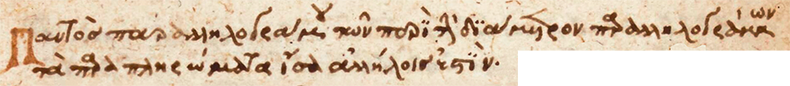 Παντὸς παραλληλογράμμου τῶν περὶ τὴν διάμετρον παραλληλογράμμων
τὰ παραπληρώματα ἴσα ἀλλήλοις ἐστίν.